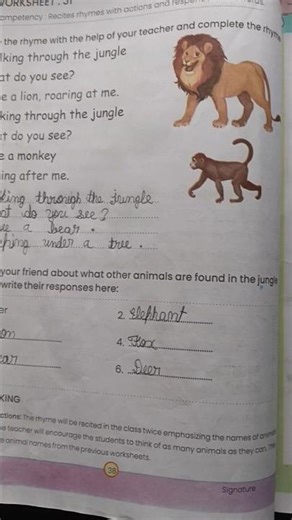 WORKSHEET : 31
ompetency : Recites rhymes with actions and
the rhyme with the help of your teacher and complete the rhyme
lking through the jungle
at do you see?
e a lion, roaring at me.
king through the jungle
t do you see?
e a monkey
ing after me.
king through the jungle
at do you see?
ee a bear.
eping under a tree.
your friend about what other animals are found in the jungle
write their responses here:
er
2. Elephant
on
4. Fox
ear
6. Deer
KING
ctions: The rhyme will be recited in the class twice emphasizing the names of
e teacher will encourage the students to think of as many animals as they can.
e animal names from the previous worksheets.
38
Signature